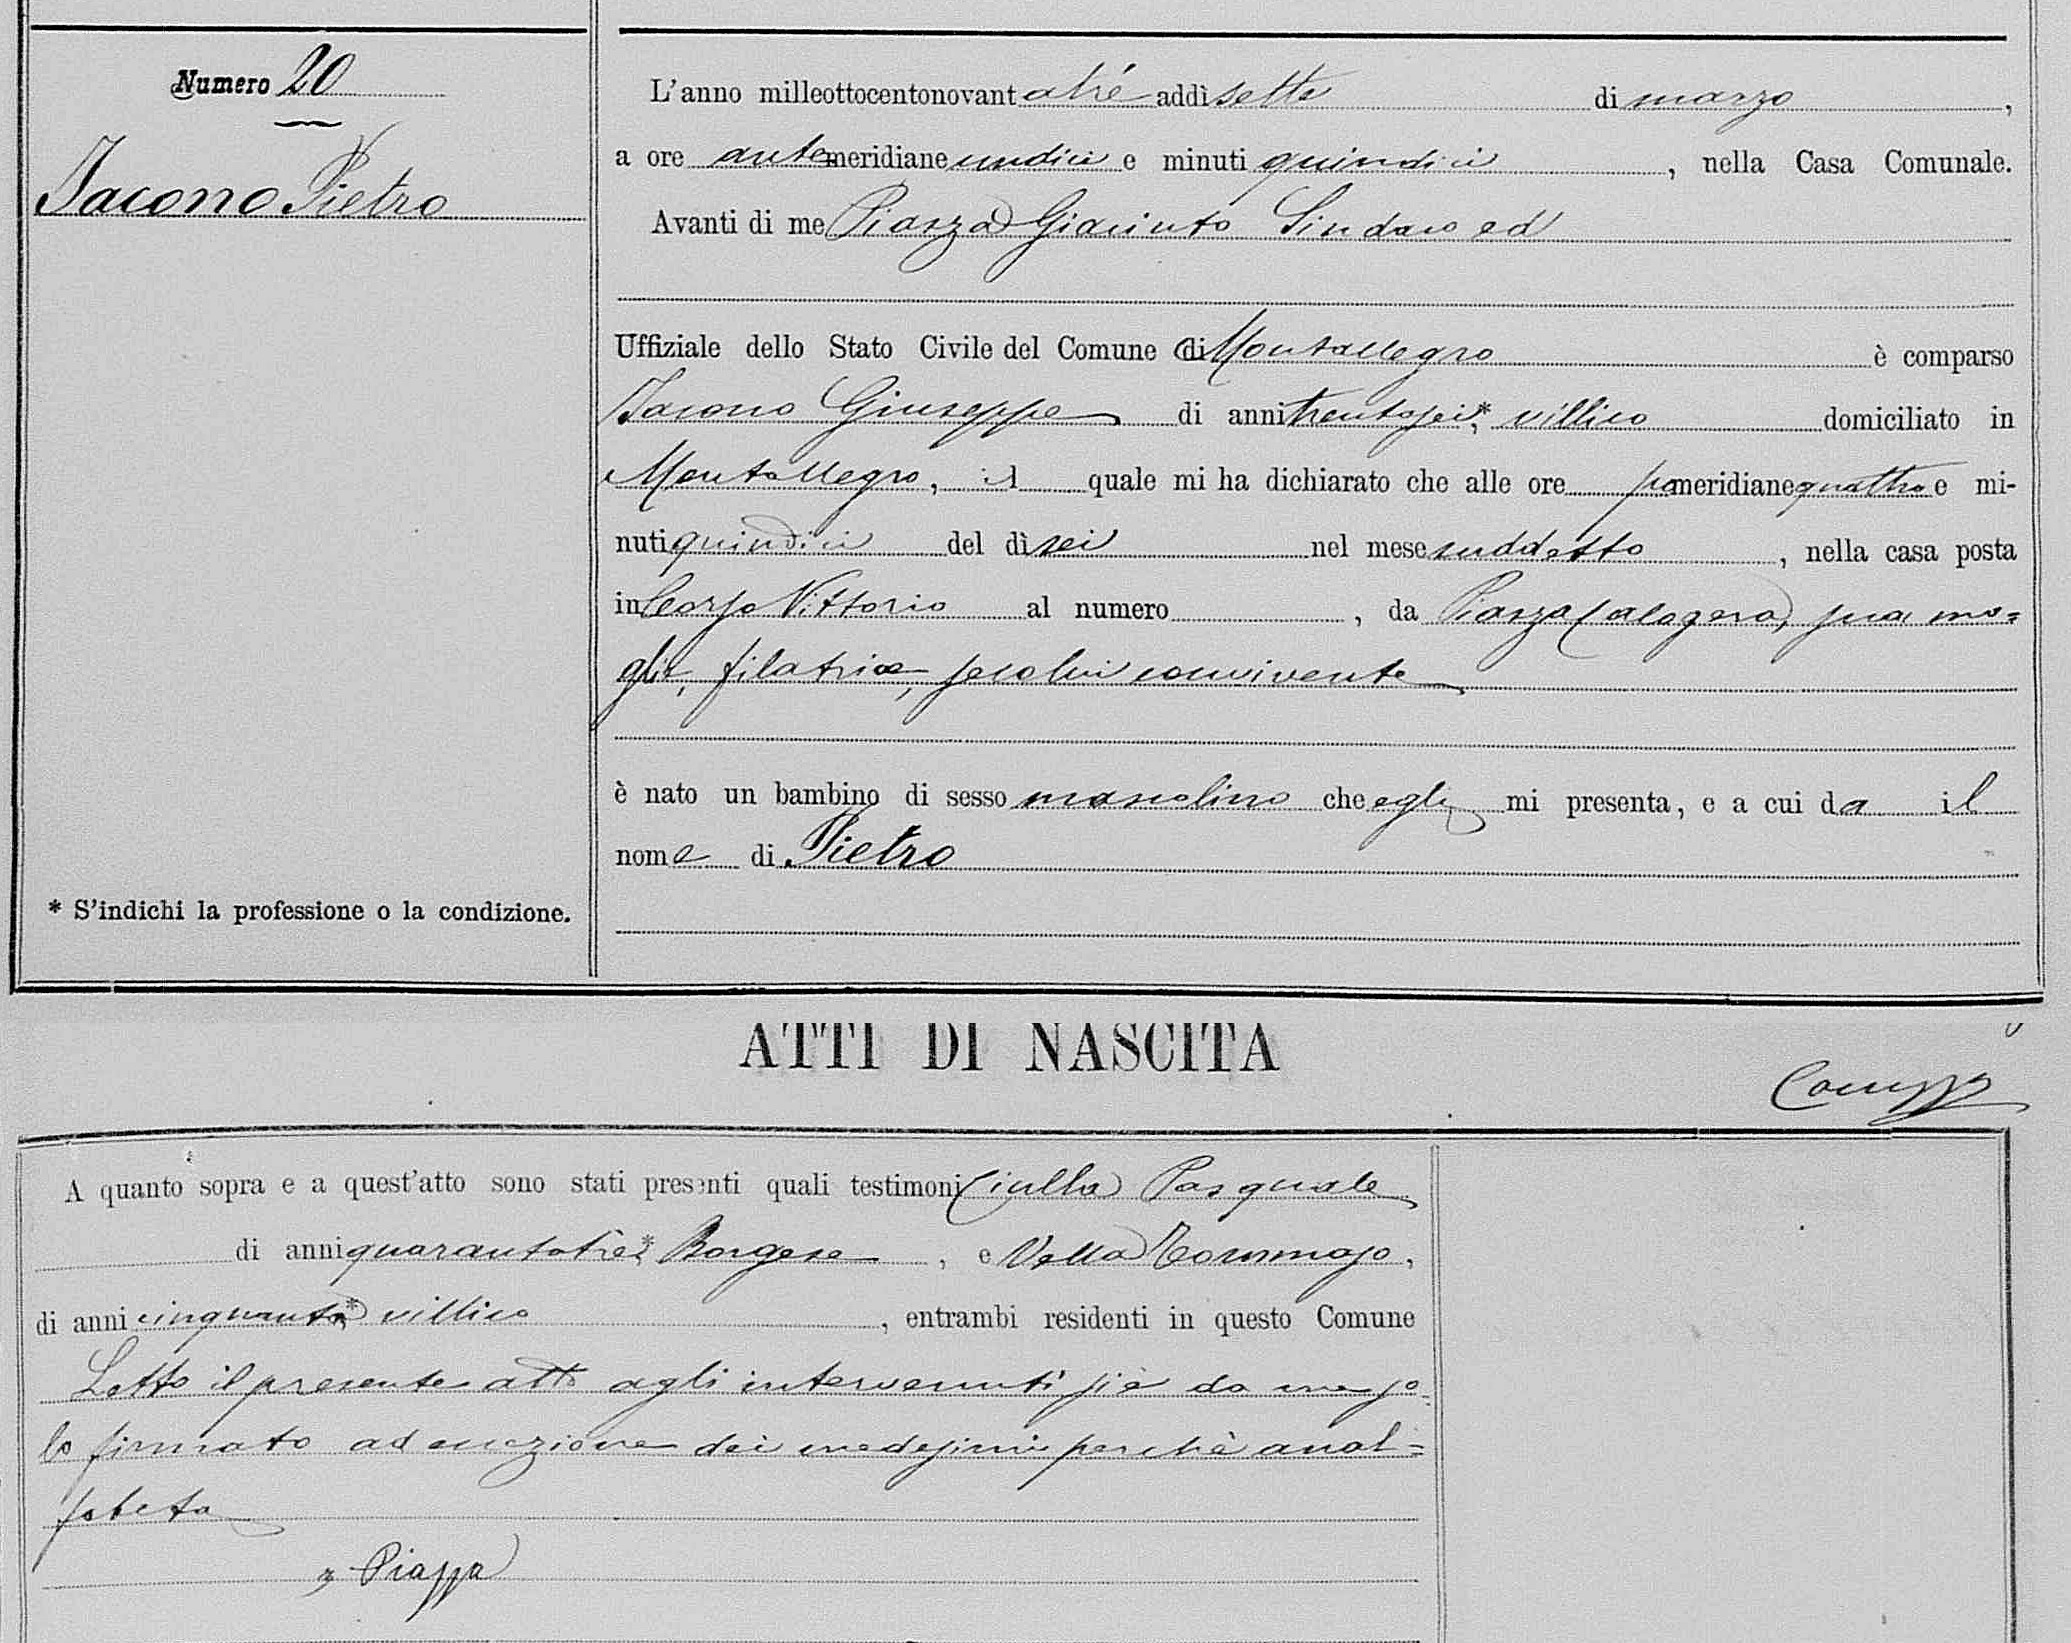 Numero 20
Iacono Pietro
* S'indichi la professione o la condizione.
L'anno milleottocentonovantatré addì sette di marzo,
a ore antemeridiane undici e minuti quindici, nella Casa Comunale.
Avanti di me Piazza Giacinto Sindaco ed
Uffiziale dello Stato Civile del Comune di Montallegro è comparso
Iacono Giuseppe di anni trentasei,* villico domiciliato in
Montallegro, il quale mi ha dichiarato che alle ore pomeridiane quattro e mi-
nuti quindici del dì sei nel mese suddetto, nella casa posta
in Corso Vittorio al numero , da Piazza Calogera, sua mo=
glie, filatrice, secolui convivente
è nato un bambino di sesso mascolino che egli mi presenta, e a cui da il
nome di Pietro
ATTI DI NASCITA
A quanto sopra e a quest'atto sono stati presenti quali testimoni Ciulla Pasquale
di anni quarantatrè,* Borgese, e Vella Tommaso,
di anni cinquanta,* villico, entrambi residenti in questo Comune
Letto il presente atto agli intervenuti si è da me so-
lo firmato ad eccezione dei medesimi perchè anal=
fabeta
Piazza